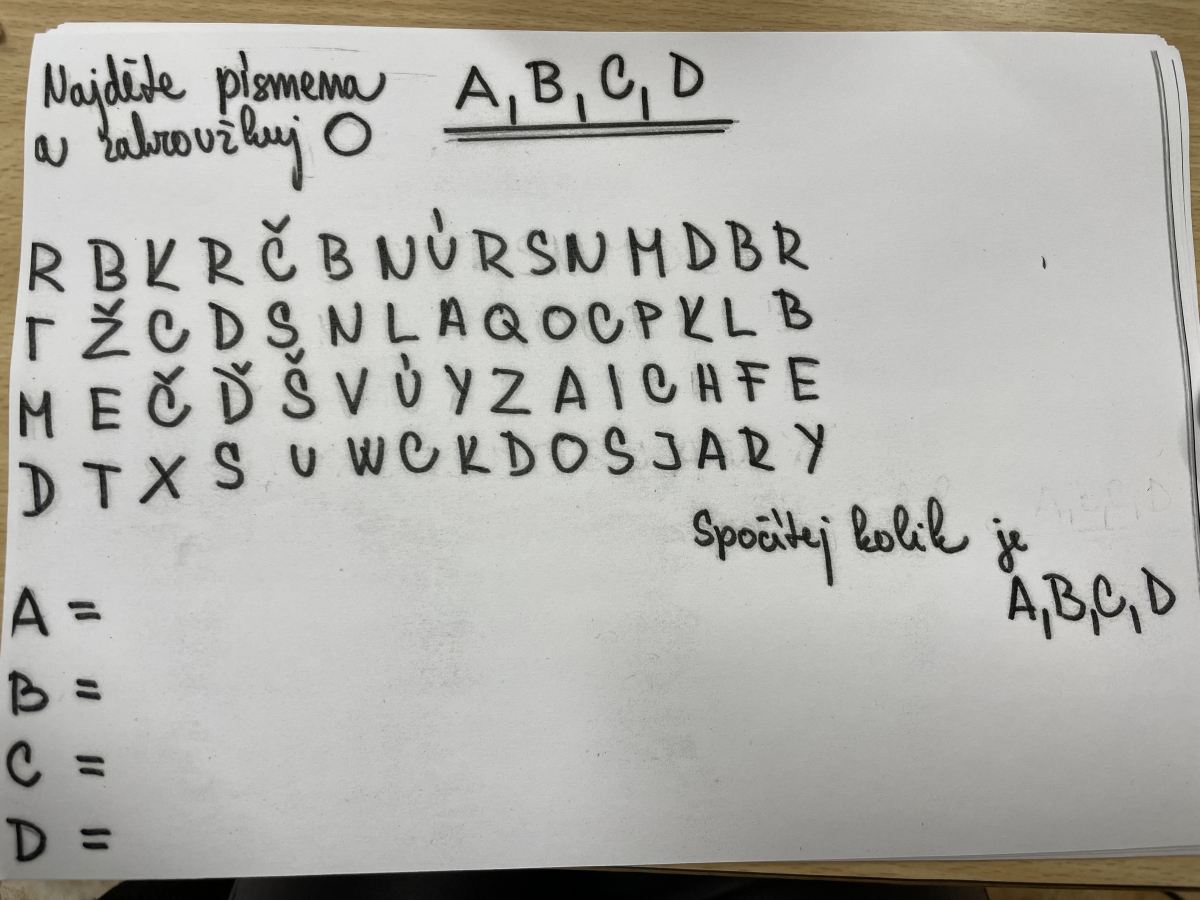 Najděte písmena A, B, C, D
a zakroužkuj O
R B K R Č B N Ú R S N M D B R
T Ž C D S N L A Q O C P K L B
M E Č Ď Š V Ú Y Z A I C H F E
D T X S U W C K D O S J A R Y
Spočítej kolik je
A, B, C, D
A =
B =
C =
D =